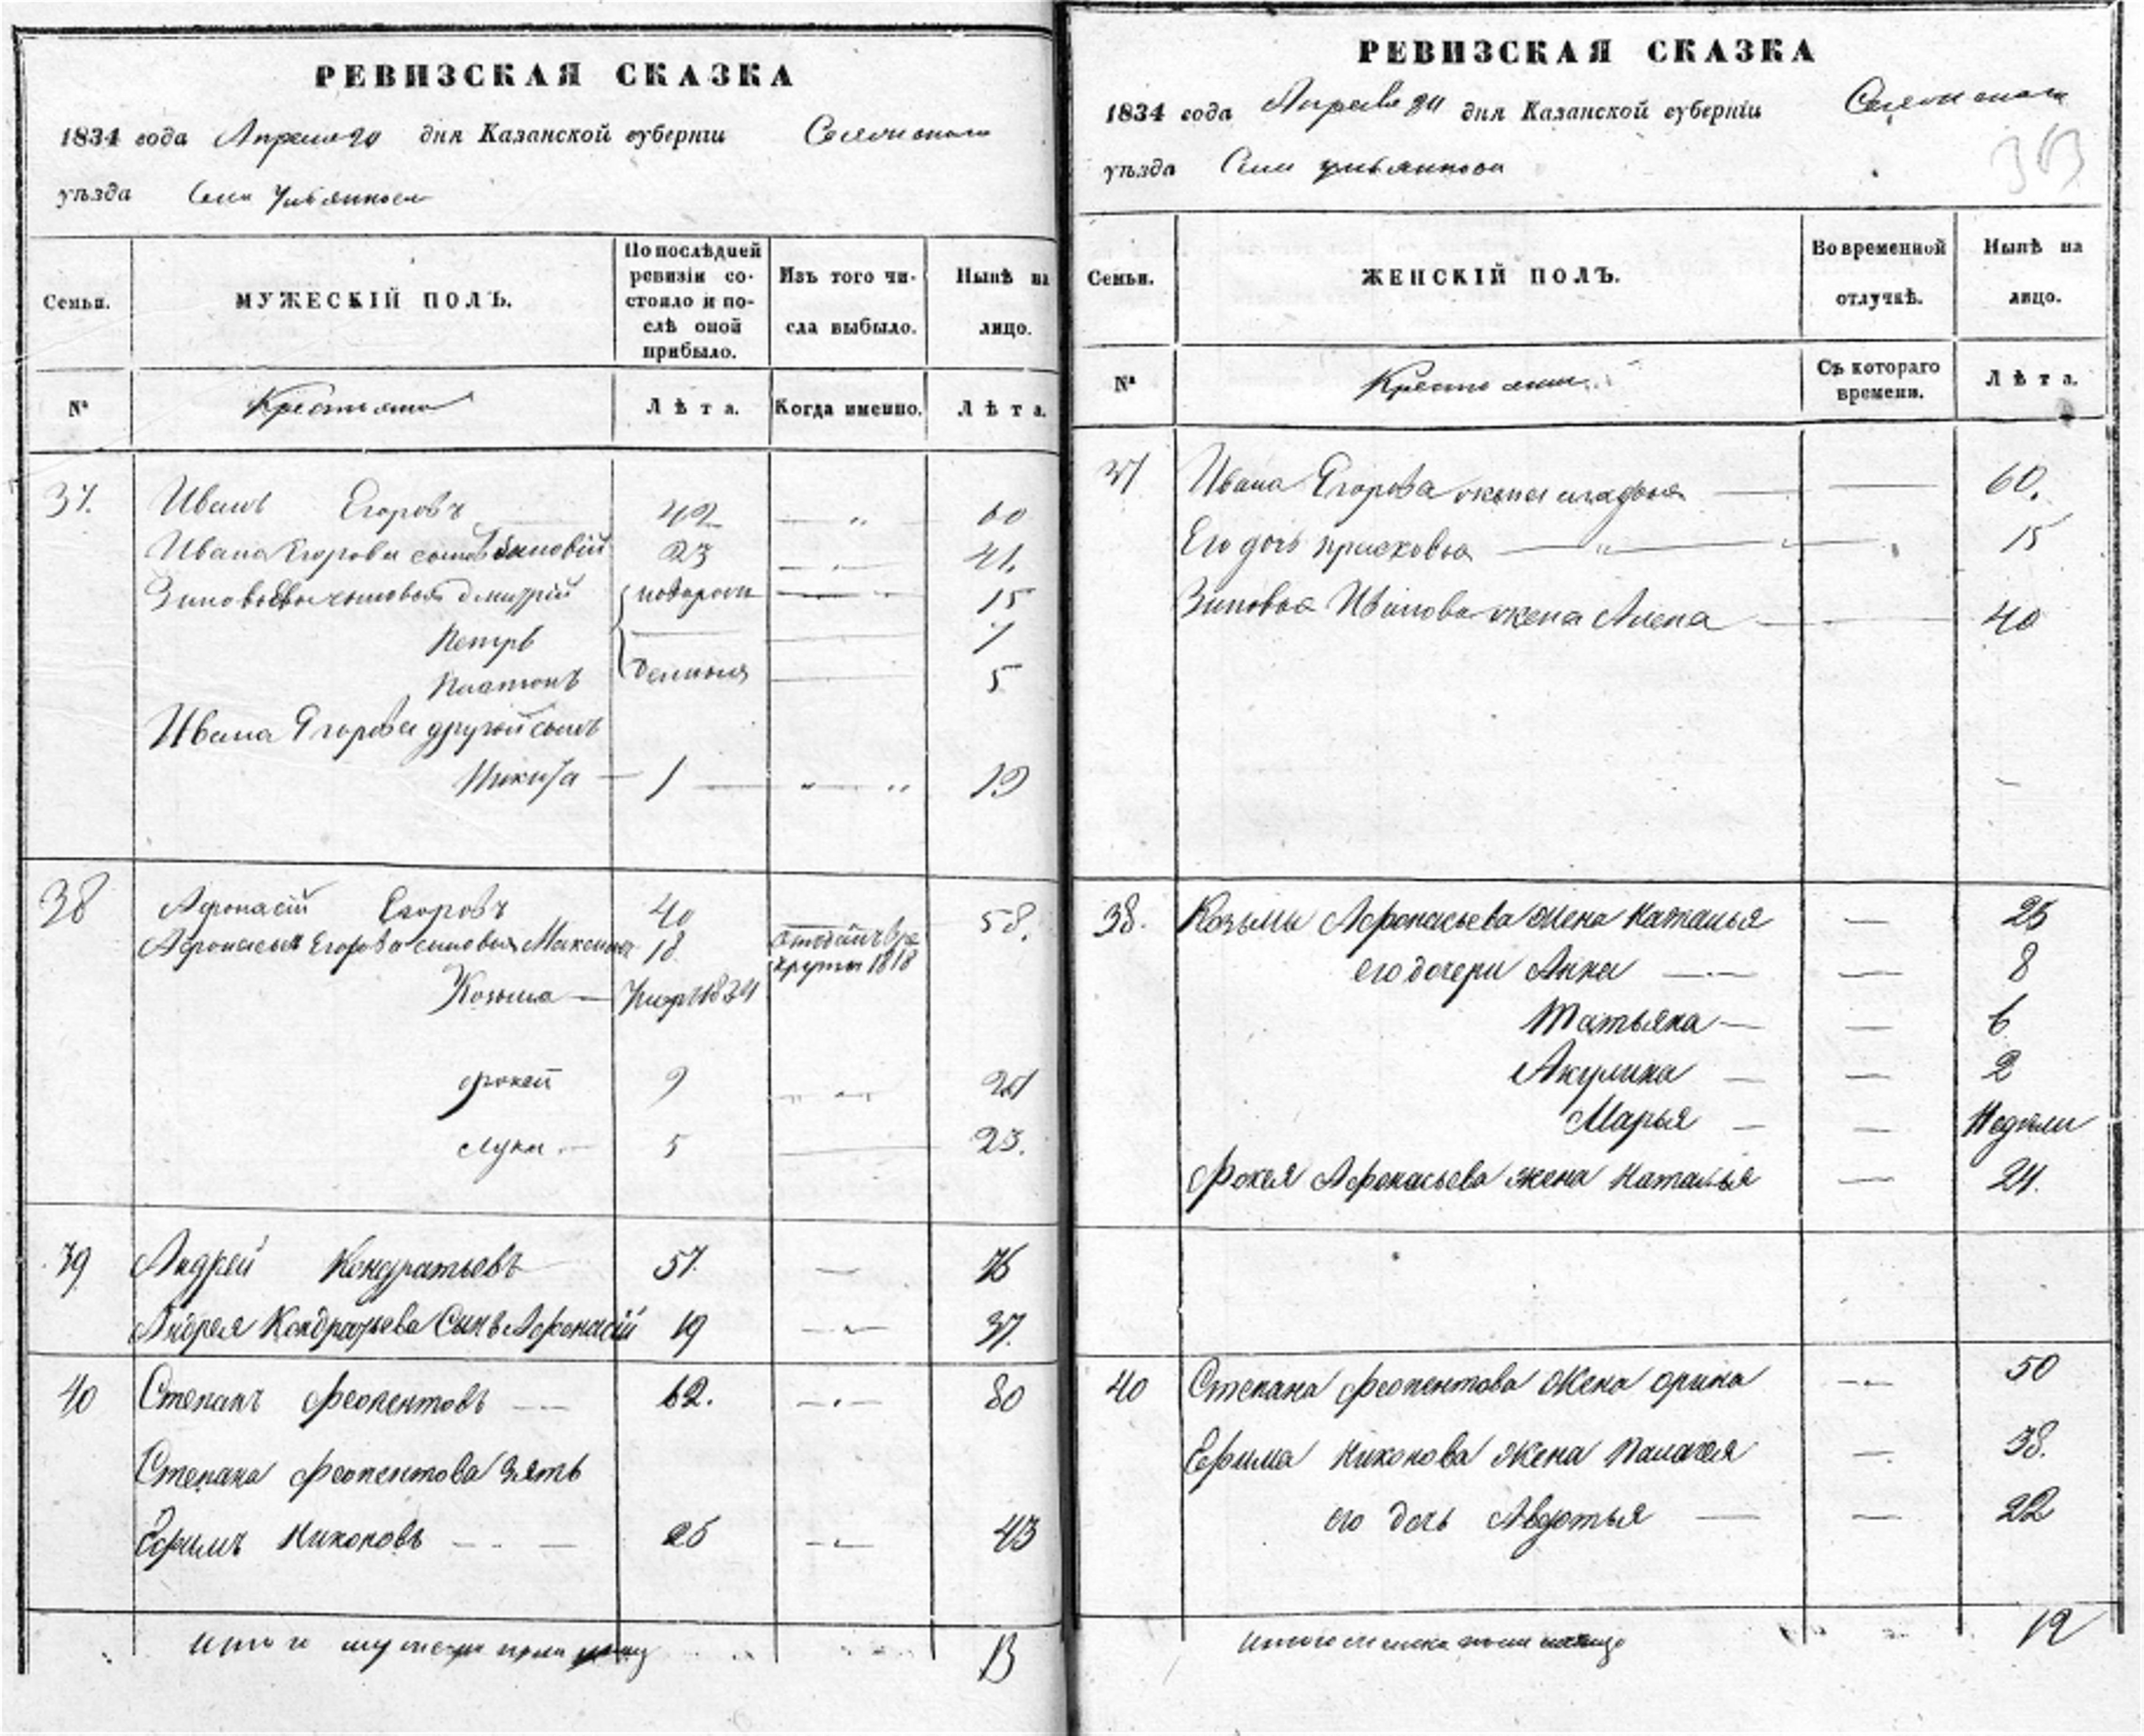 РЕВИЗСКАЯ СКАЗКА
1834 года Апреля 20 дня Казанской губерніи
уѣзда Села
Семьи.
МУЖЕСКІЙ ПОЛЪ.
По послѣдней
ревизіи со-
стояло и по-
слѣ оной
прибыло.
Изъ того чи-
сла выбыло.
Нынѣ на
лицо.
№
Крестьяне
Лѣта.
Когда именно.
Лѣта.
37. Иванъ Егоровъ 42 60
Ивана Егорова сынъ Зиновій 23 41.
Зиновьевы сыновья Дмитрій 15
Петръ 7
Платонъ 5
Ивана Егорова другой сынъ
Никита 1 19
38 Афонасій Егоровъ 40 58.
Афонасья Егорова сыновья Максимъ 18 отданъ в ре
круты 1818
Козьма — 1834
Фокей 9 27
Лука — 5 23.
39 Андрей Кондратьевъ 57. — 76
Андрея Кондратьева Сынъ Афонасій 19 37.
40 Степанъ Феопентовъ 62. 80
Степана Феопентова Зять
Ефимъ Никоновъ 25 43
Итого мужеска пола 13
РЕВИЗСКАЯ СКАЗКА
1834 года Апреля 20 дня Казанской губерніи
уѣзда Села
Семьи.
ЖЕНСКІЙ ПОЛЪ.
Во временной
отлучкѣ.
Нынѣ на
лицо.
№
Крестьяне
Съ котораго
времени.
Лѣта.
37 Ивана Егорова жена 60.
Его дочь Прасковья 15
Зиновья Иванова жена Алена 40
38. Козьмы Афонасьева Жена Наталья — 25
его дочери Анна — 8
Татьяна — 6
Акулина — 2
Марья — Недели
Фокея Афонасьева жена Наталья — 21.
40 Степана Феопентова Жена Орина 50
Ефима Никонова Жена Палагея 38.
его дочь Авдотья — 22
Итого женска пола налицо 12